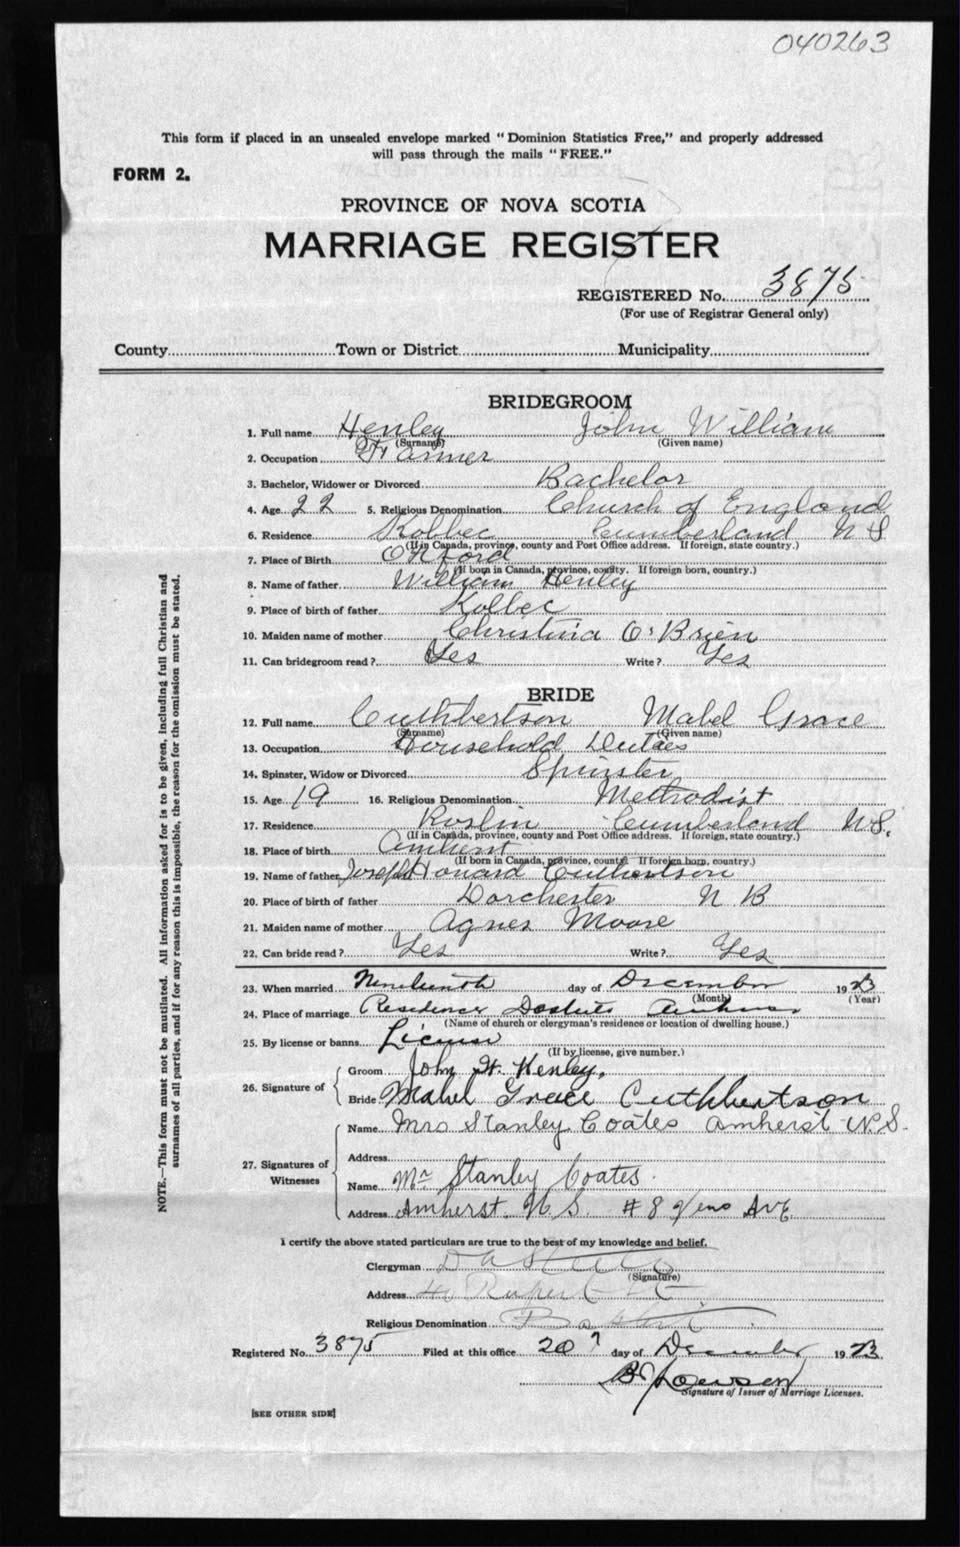 040263
This form if placed in an unsealed envelope marked "Dominion Statistics Free," and properly addressed
will pass through the mails "FREE."
FORM 2.
PROVINCE OF NOVA SCOTIA
MARRIAGE REGISTER
REGISTERED No. 3875
(For use of Registrar General only)
County Town or District Municipality
BRIDEGROOM
1. Full name Henley John William
(Surname) (Given name)
2. Occupation Farmer
3. Bachelor, Widower or Divorced Bachelor
4. Age 22 5. Religious Denomination Church of England
6. Residence Kolbec Cumberland N S
(If in Canada, province, county and Post Office address. If foreign, state country.)
7. Place of Birth Oxford
(If born in Canada, province, county. If foreign born, country.)
8. Name of father William Henley
9. Place of birth of father Kolbec
10. Maiden name of mother Christina O'Brien
11. Can bridegroom read? Yes Write? Yes
BRIDE
12. Full name Cuthbertson Mabel Grace
(Surname) (Given name)
13. Occupation Household Duties
14. Spinster, Widow or Divorced Spinster
15. Age 19 16. Religious Denomination Methodist
17. Residence Roslin Cumberland N.S.
(If in Canada, province, county and Post Office address. If foreign, state country.)
18. Place of birth Amherst
(If born in Canada, province, county. If foreign born, country.)
19. Name of father Joseph Howard Cuthbertson
20. Place of birth of father Dorchester N B
21. Maiden name of mother Agnes Moore
22. Can bride read? Yes Write? Yes
23. When married Nineteenth day of December 1923
(Month) (Year)
24. Place of marriage Residence Amherst
(Name of church or clergyman's residence or location of dwelling house.)
25. By license or banns License
(If by license, give number.)
26. Signature of
Groom John W. Henley.
Bride Mabel Grace Cuthbertson
27. Signatures of Witnesses
Name Mrs Stanley Coates Amherst N.S.
Address
Name Mr Stanley Coates.
Address Amherst N.S. #8 Ave
I certify the above stated particulars are true to the best of my knowledge and belief.
Clergyman D A Steele
(Signature)
Address 4 Rupert
Religious Denomination Baptist
Registered No. 3875 Filed at this office 20 day of December 1923
Signature of Issuer of Marriage Licenses.
[SEE OTHER SIDE]
NOTE.—This form must not be mutilated. All information asked for is to be given, including full Christian and
surnames of all parties, and if for any reason this is impossible, the reason for the omission must be stated.